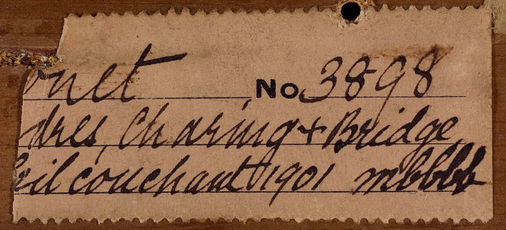 onet No 3898
dres, Charing + Bridge,
eil couchant 1901 mbbbb